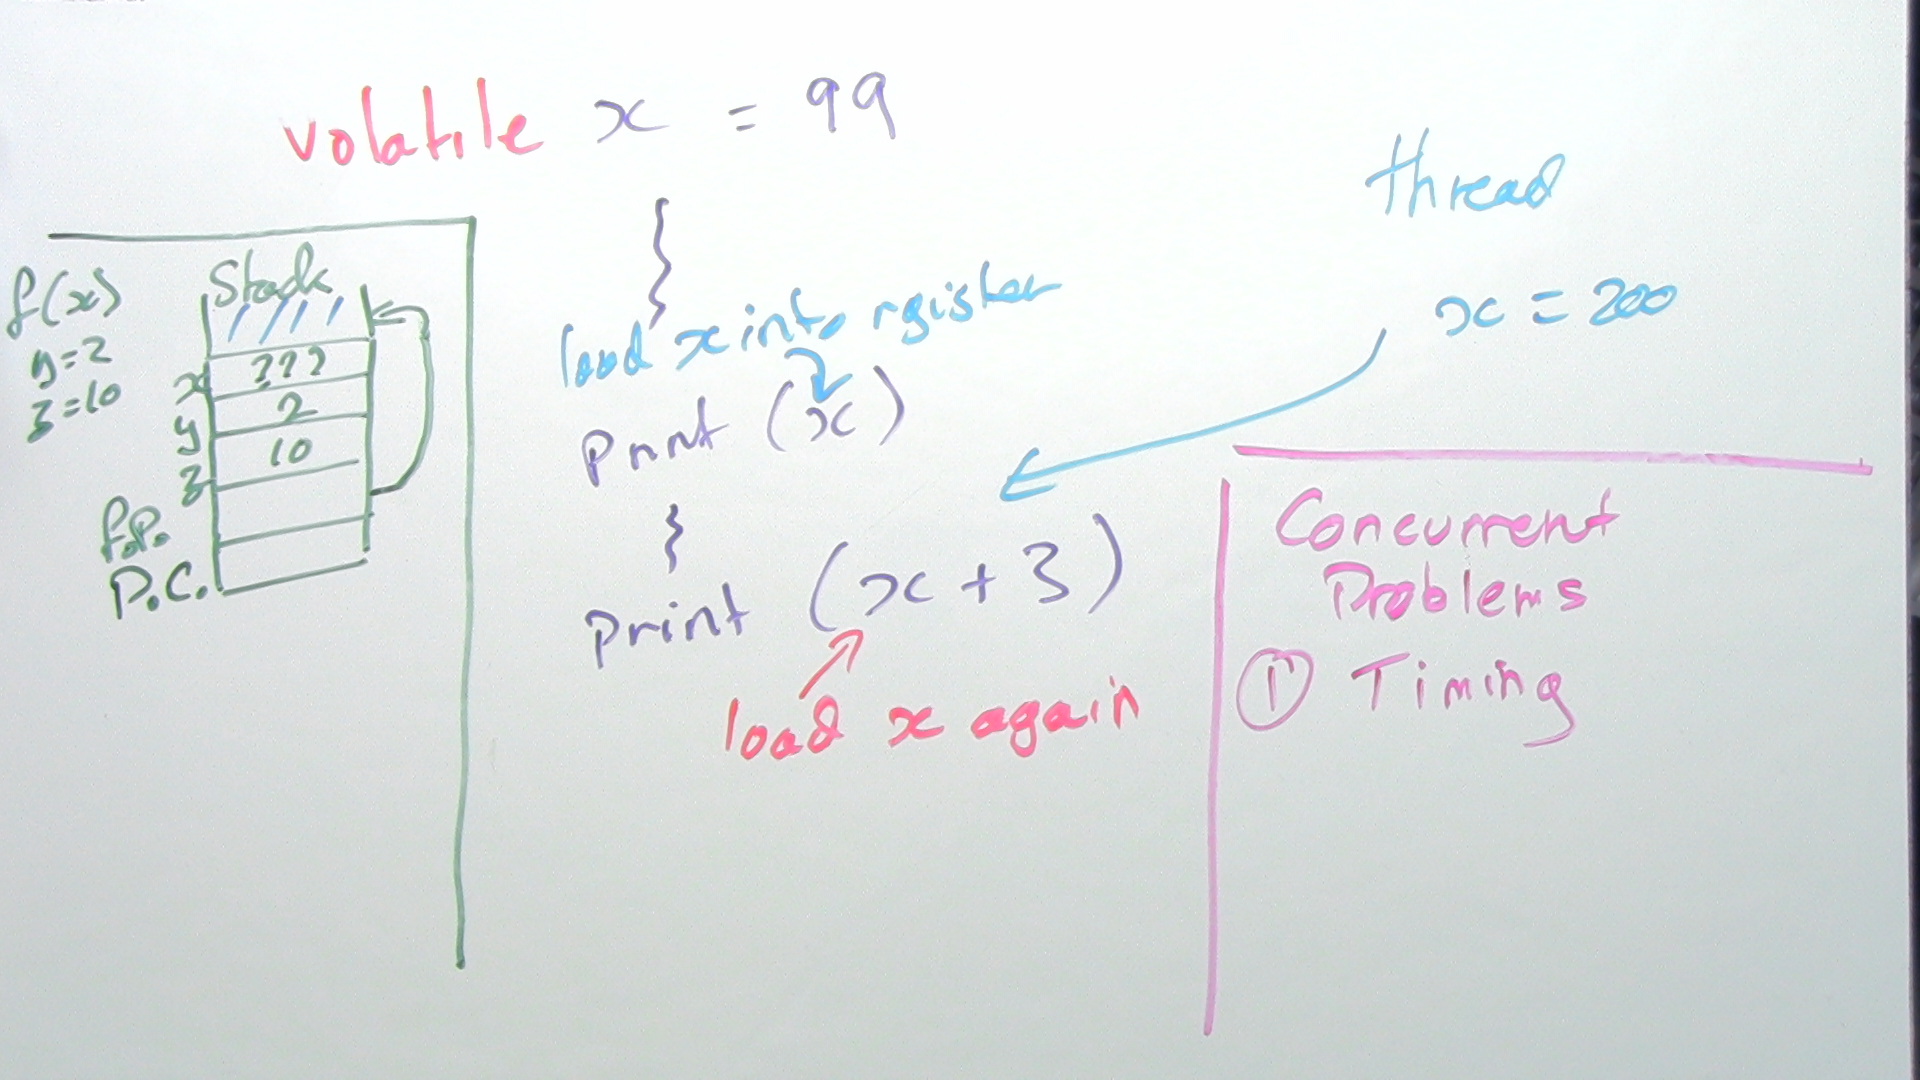 volatile x = 99
thread
x = 200
f(x)
y=2
z=10
Stack
x ???
y 2
z 10
f.P.
P.C.
}
load x into rgister
Print (x)
}
Print (x + 3)
load x again
Concurrent
Problems
① Timing